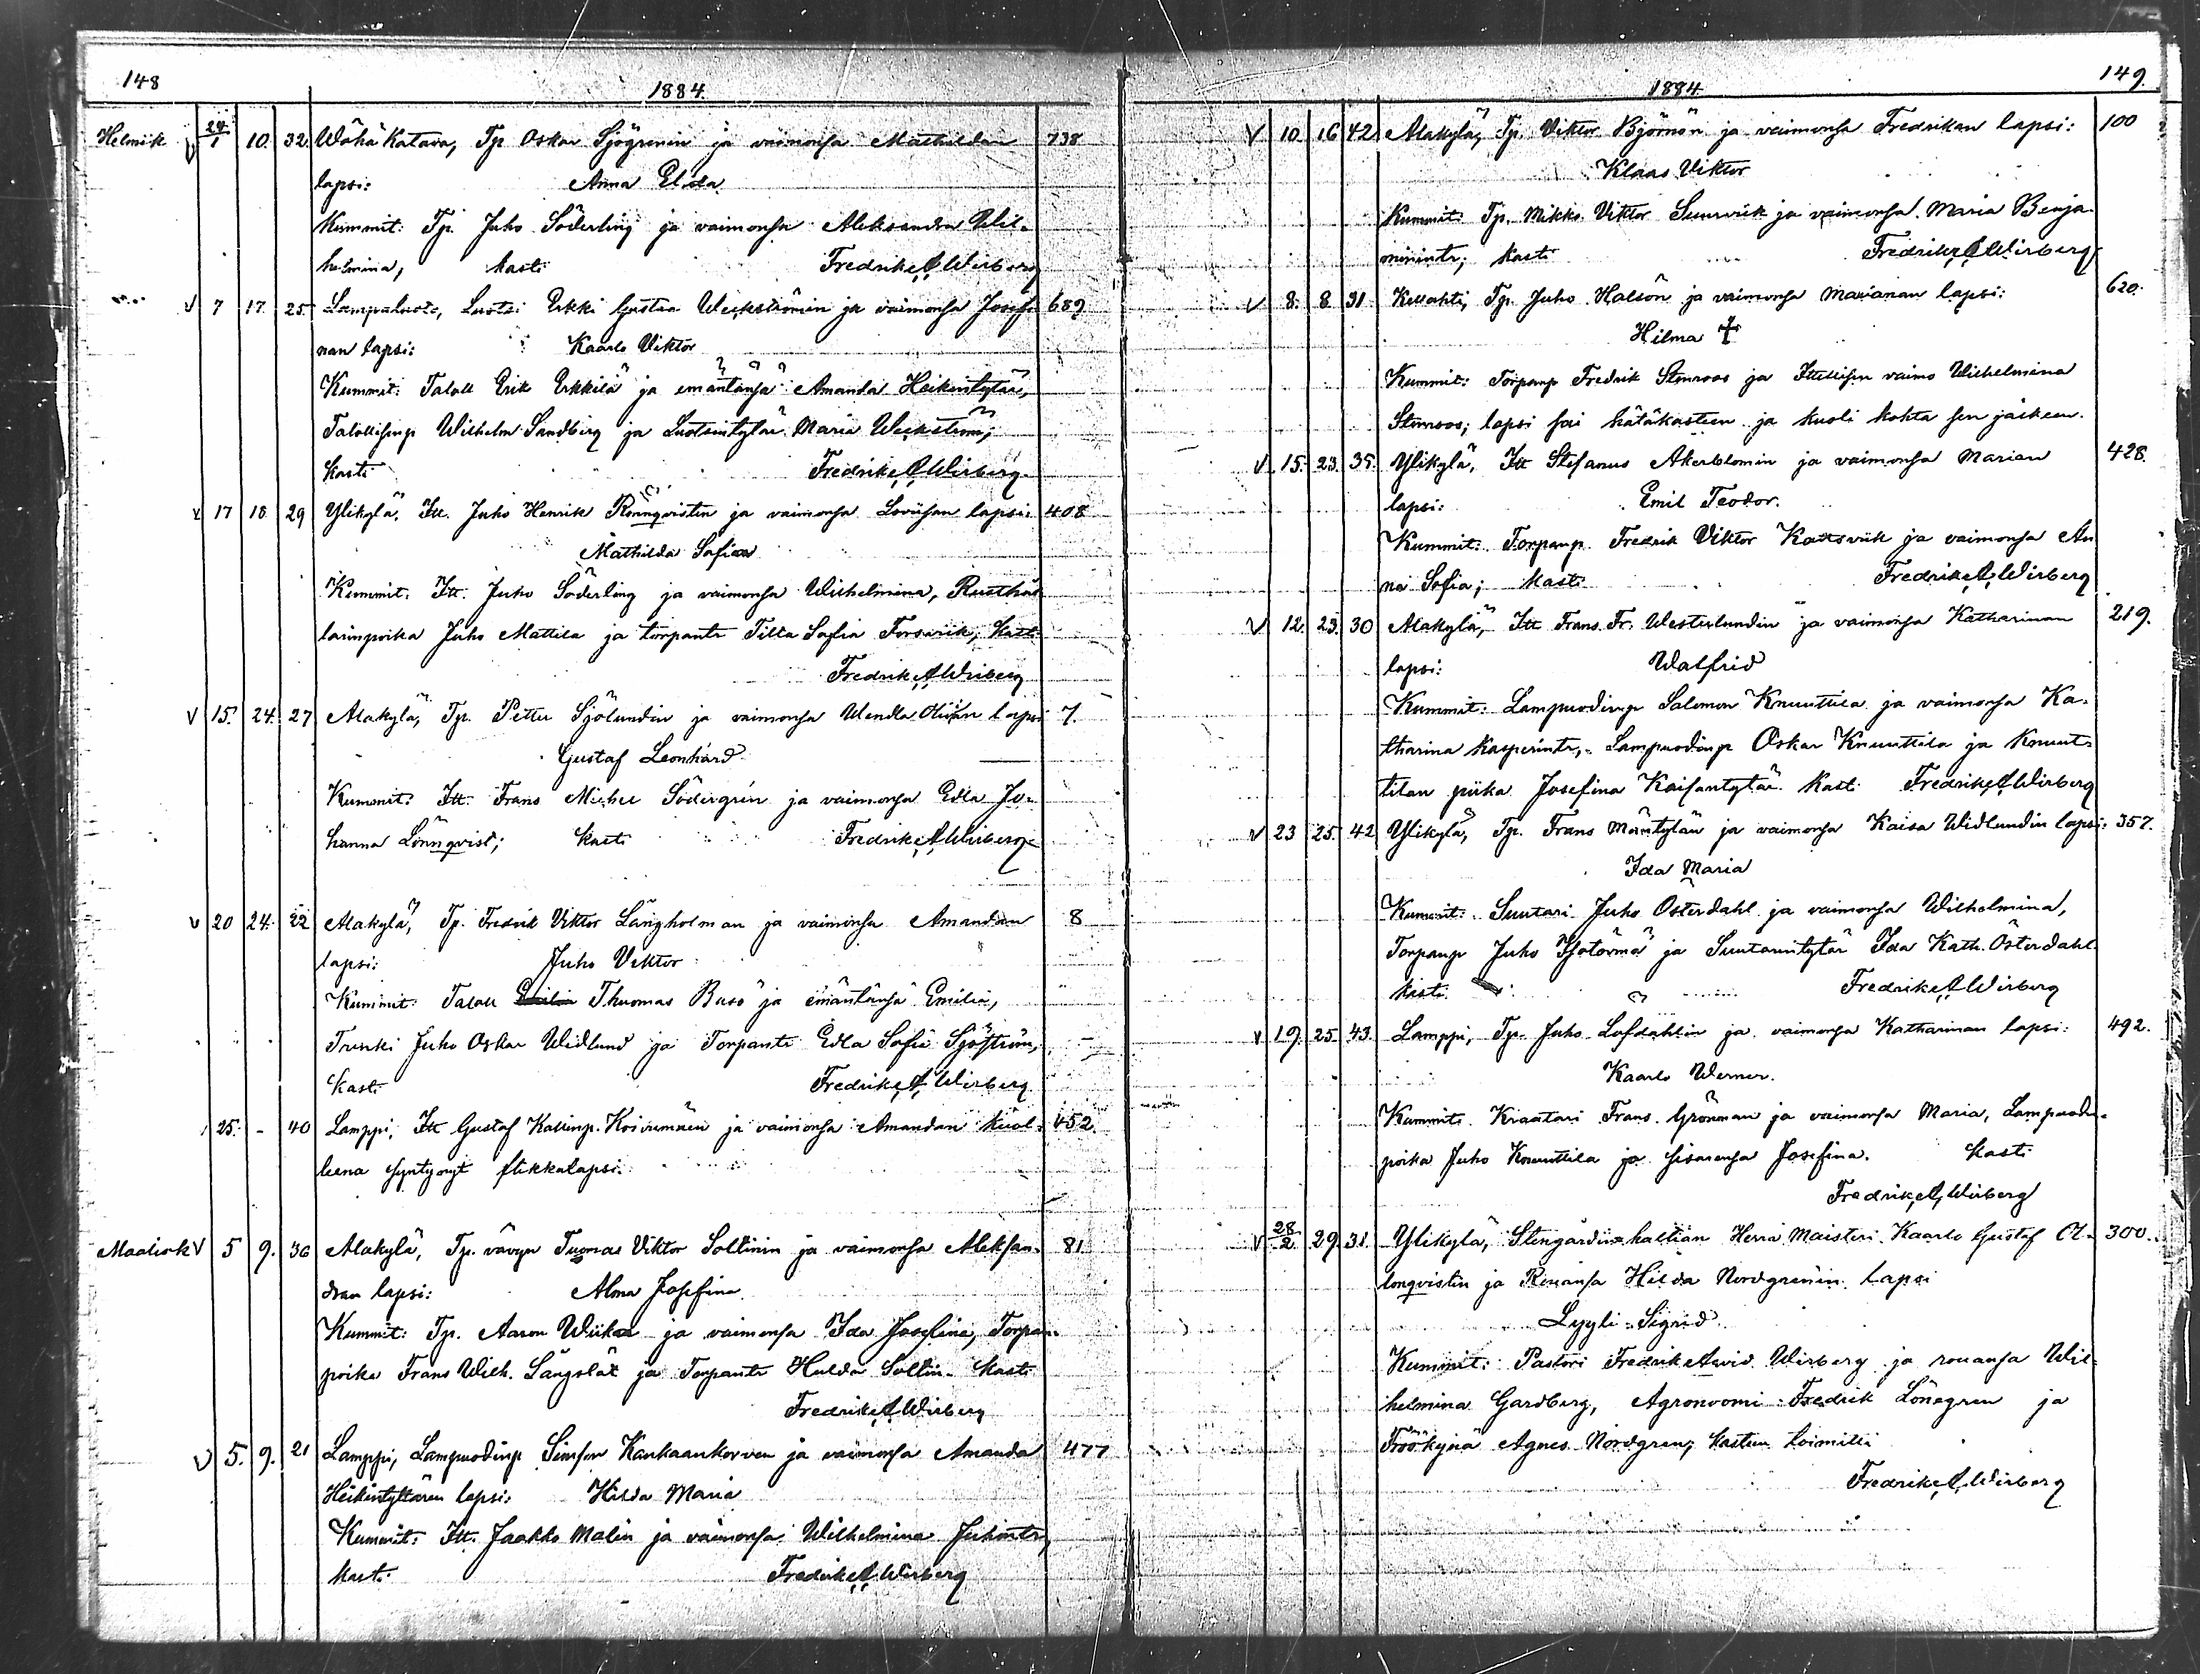 148
1884.
Helmik V 24/1 10. 32. Wähä Katava, Tp. Oskar Sjögrenin ja vaimonsa Mathildan 738
lapsi: Anna Elida
Kummit: Tp. Juho Söderling ja vaimonsa Aleksandra Wil-
helmina, kasti Fredrik A. Wirberg
V 7 17. 25. Lampaluoto, Luotsi Erkki Gustaa Weckströmin ja vaimonsa Josefi- 689
nan lapsi: Kaarlo Viktor
Kummit: Talol Erik Erkkilä ja emäntänsä Amanda Heikintytär,
Talollisenp Wilhelm Sandberg ja Luotsintytär Maria Weckström;
kasti Fredrik A. Wirberg
V 17 18 29 Ylikylä, Itt. Juho Henrik Rönnqvistin ja vaimonsa Loviisan lapsi: 408
Mathilda Sofia
Kummit: Itt. Juho Söderling ja vaimonsa Wilhelmina, Rusthol
larinpoika Juho Mattila ja torpantr Tilta Sofia Forsvik, Kasti
Fredrik A. Wirberg
V 15. 24. 27 Alakylä, Tp. Petter Sjölundin ja vaimonsa Wendla Olivian lapsi 7.
Gustaf Leonhard
Kummit: Itt. Frans Michel Södergrén ja vaimonsa Edla Jo-
hanna Lönnqvist; kasti Fredrik A. Wirberg
V 20 24. 22 Alakylä, Tp. Fredrik Viktor Långholman ja vaimonsa Amandan 8
lapsi: Juho Viktor
Kummit: Talol Thuomas Busö ja emäntänsä Emilia,
Trenki Juho Oskar Widlund ja Torpantr Edla Sofia Sjöström,
kasti Fredrik A. Wirberg
25. - 40 Lamppi, Itt Gustaf Kallinp. Koivumäen ja vaimonsa Amandan kuol- 452.
leena syntynyt flikkalapsi.
Maalisk V 5 9. 36 Alakylä, Tp. vävyn Tuomas Viktor Soltinin ja vaimonsa Aleksan- 81
dran lapsi: Alma Josefina
Kummit: Tp. Aaron Wiik ja vaimonsa Ida Josefina, Torpan-
poika Frans Wilh. Långslät ja Torpantr Hulda Soltin. kasti
Fredrik A. Wirberg
V 5. 9. 21 Lamppi, Lampuodinp Simson Kankaankorven ja vaimonsa Amanda 477
Heikintyttären lapsi: Hilda Maria
Kummit: Itt. Jaakko Malin ja vaimonsa Wilhelmina Juhontr,
kasti Fredrik A. Wirberg
149.
1884
V 10 16 42 Alakylä, Tp. Viktor Björnön ja vaimonsa Fredrikan lapsi: 100
Klaas Viktor
Kummit: Tp. Mikko Viktor Suurvik ja vaimonsa Maria Benja-
minintr; kasti Fredrik A. Wirberg
V 8. 8 31 Kellahti, Tp. Juho Halsön ja vaimonsa Marianan lapsi: 620.
Hilma †
Kummit: Torpanp Fredrik Stenroos ja Itsellisen vaimo Wilhelmina
Stenroos; lapsi sai hätäkasteen ja kuoli kohta sen jälkeen.
V 15. 23. 35. Ylikylä, Itt Stefanus Åkerblomin ja vaimonsa Marian 428.
lapsi: Emil Teodor.
Kummit: Torpanp. Fredrik Viktor Kattsvik ja vaimonsa An
na Sofia; kasti Fredrik A. Wirberg
V 12. 23. 30 Alakylä, Itt Frans Fr. Westerlundin ja vaimonsa Katharinan 219.
lapsi: Walfrid
Kummit: Lampuodinp Salomon Knuuttila ja vaimonsa Ka-
tharina Kasperintr, Lampuodinp Oskar Knuuttila ja Knuut-
tilan piika Josefina Kaisantytär. kasti Fredrik A. Wirberg
V 23 25. 42 Ylikylä, Tp. Frans Mäntylän ja vaimonsa Kaisa Widlundin lapsi: 357.
Ida Maria
Kummit: Suutari Juho Österdahl ja vaimonsa Wilhelmina,
Torpanp Juho Isotörmä ja Suutarintytär Ida Kath. Österdahl
kasti Fredrik A. Wirberg
V 19. 25. 43. Lamppi, Tp. Juho Löfdahlin ja vaimonsa Katharinan lapsi: 492.
Kaarlo Werner.
Kummit: Kraatari Frans Grönman ja vaimonsa Maria, Lampuodin-
poika Juho Knuuttila ja sisarensa Josefina. kasti
Fredrik A. Wirberg
V 28/2 29. 31. Ylikylä, Stengårdin haltian Herra Maisteri Kaarlo Gustaf A- 300.
lonqvistin ja Rouansa Hilda Nordgrenin lapsi
Lyyli Sigrid
Kummit: Pastori Fredrik Arvid Wirberg ja rouansa Wil-
helmina Gardberg, Agronoomi Fredrik Lönegren ja
Fröökynä Agnes Nordgren; kasteen toimitti
Fredrik A. Wirberg